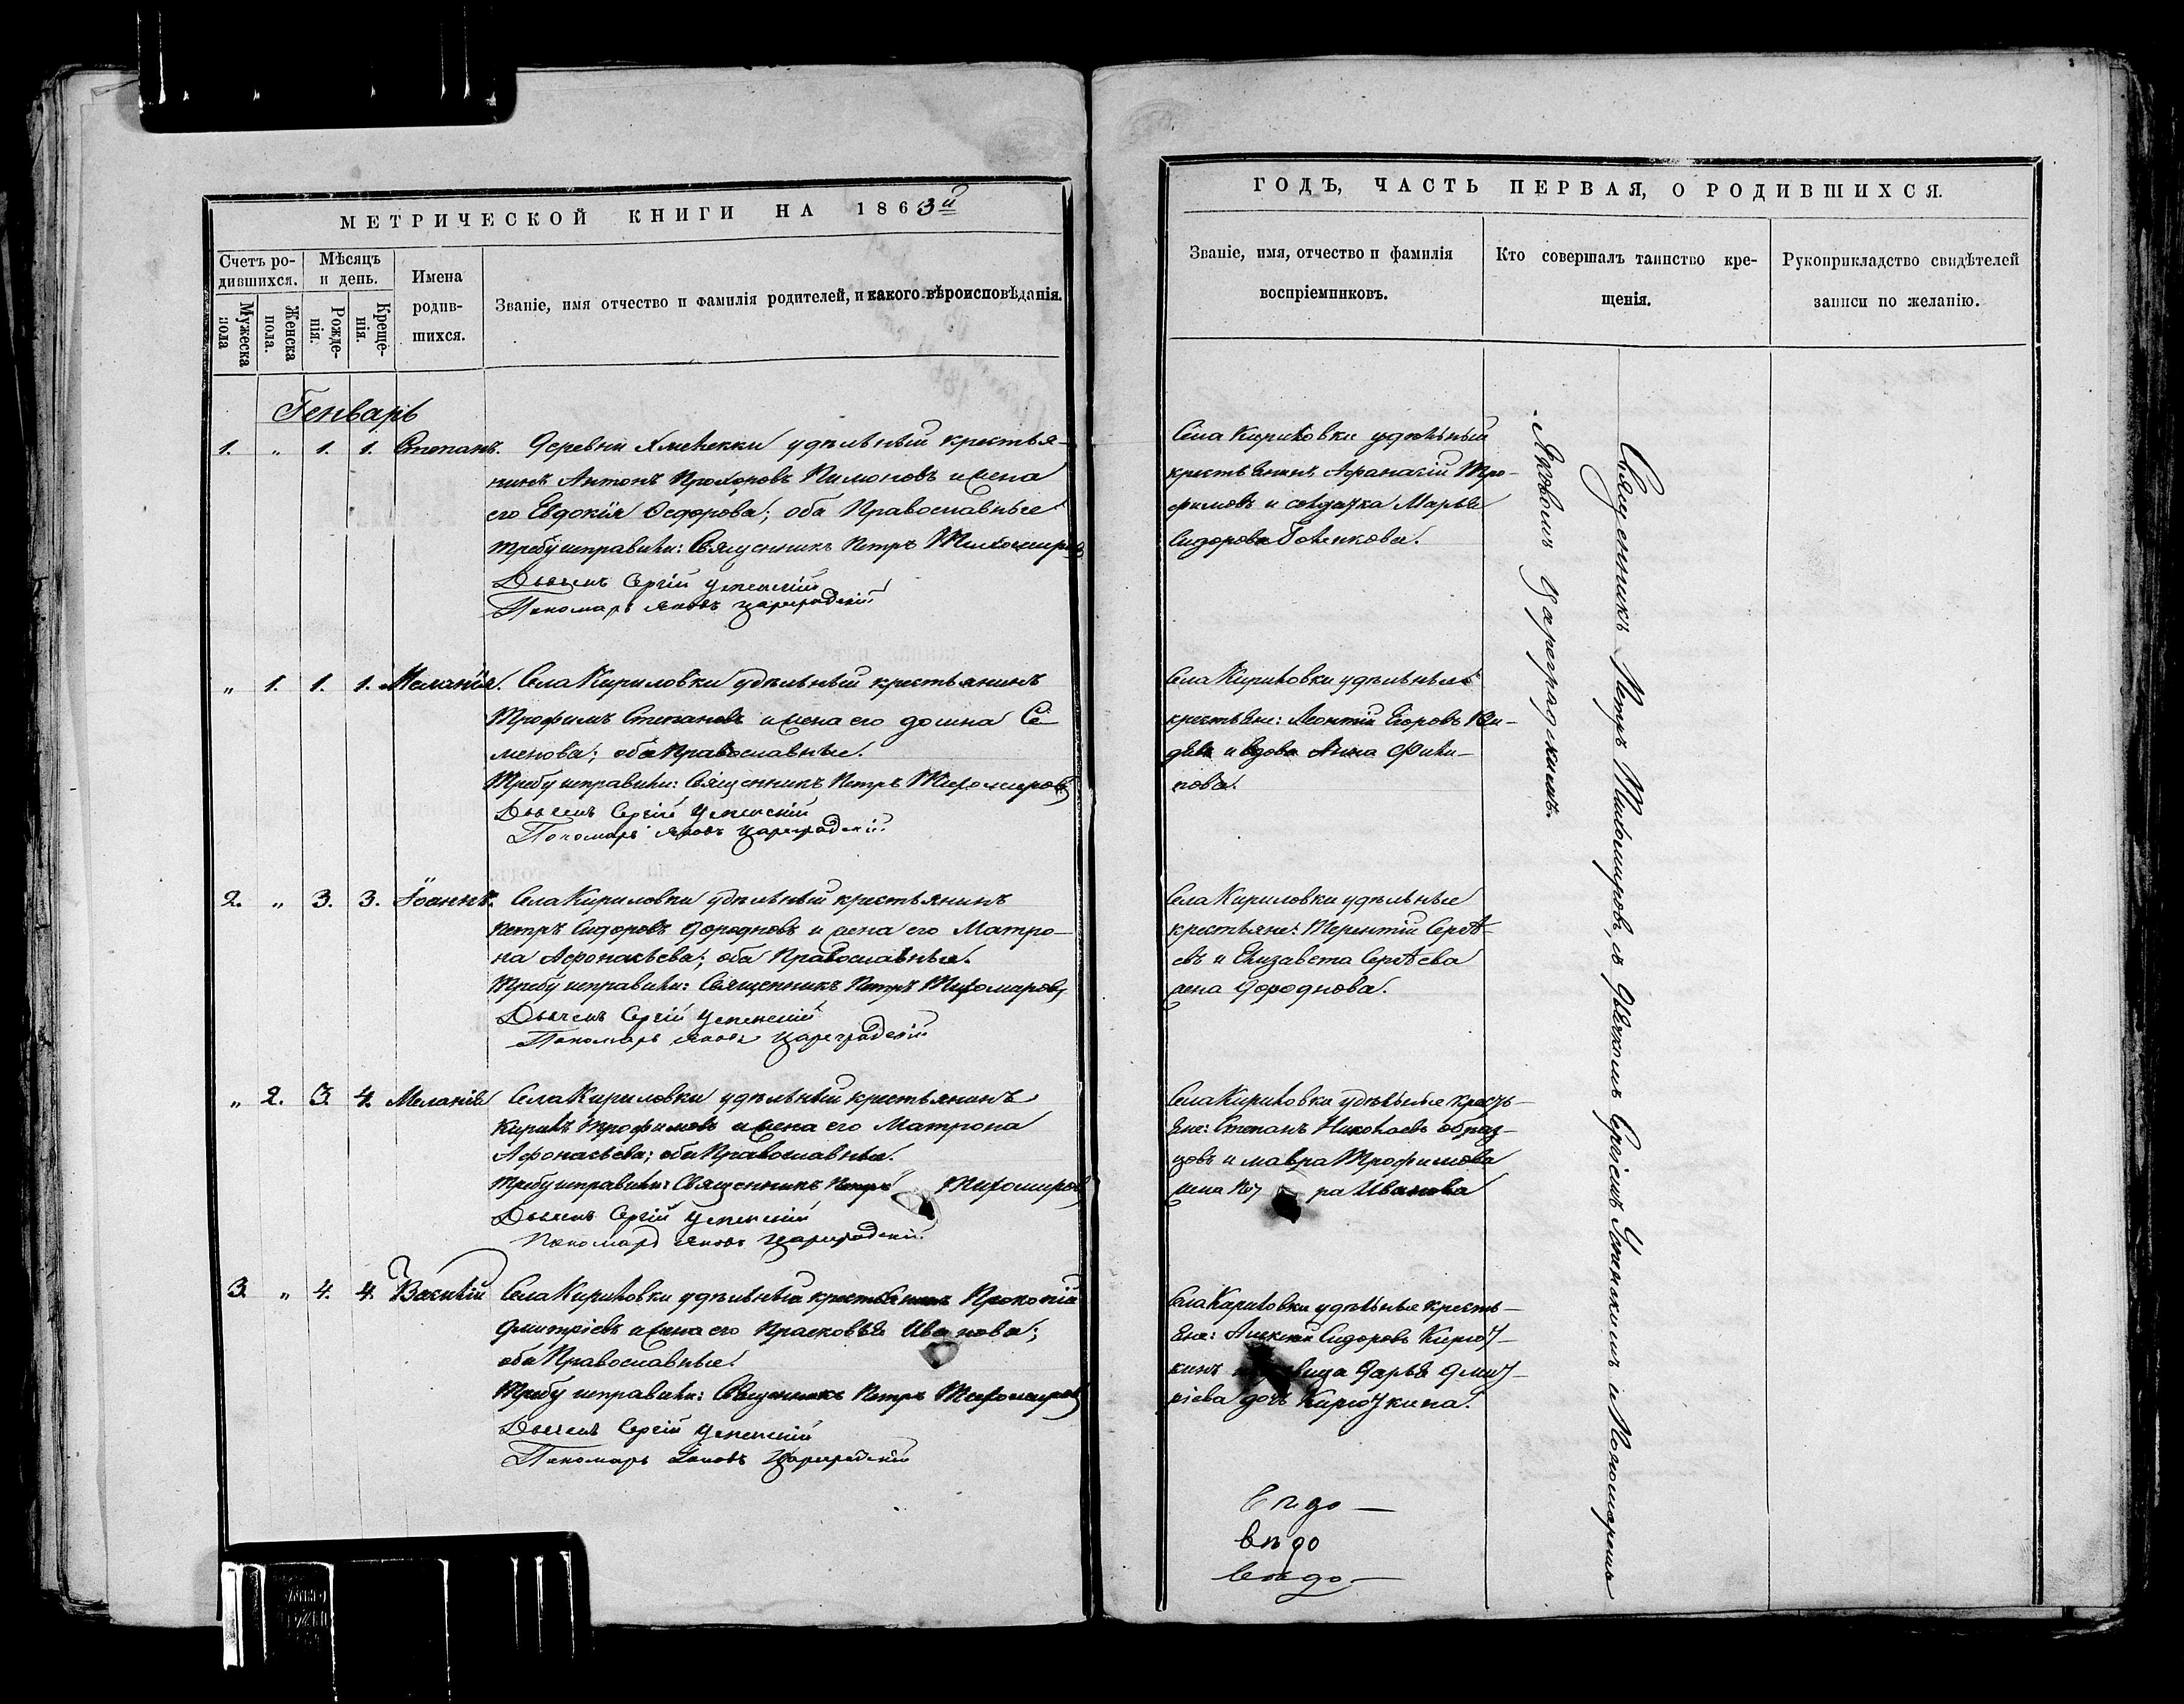 МЕТРИЧЕСКОЙ КНИГИ НА 1863й
Счетъ ро-
дившихся.
Мѣсяцъ
и день.
Имена
родив-
шихся.
Званіе, имя отчество и фамилія родителей, и какого вѣроисповѣданія.
Мужеска
пола
Женска
пола.
Рожде-
нія.
Креще-
нія.
Генварь
1. „ 1. 1. Степанъ. Деревни удѣльный крестья-
нинъ Антонъ Прохоровъ Пимоновъ и жена
его Евдокія Ѳедорова; оба Православные
Требу исправили: Священникъ Петръ Тихомировъ
Дьячекъ Сергій Успенскій
Пономарь Яковъ Цареградскій
„ 1. 1. 1. Меланія. Села Кириловки удѣльный крестьянинъ
Трофимъ Степановъ и жена его домна Се-
менова; оба Православные.
Требу исправили: Священникъ Петръ Тихомировъ
Дьячекъ Сергій Успенскій
Пономарь Яковъ Цареградскій
2. „ 3. 3. Іоаннъ. Села Кириловки удѣльный крестьянинъ
Петръ Сидоровъ Дородновъ и жена его Матро-
на Афонасьева; оба Православные.
Требу исправили: Священникъ Петръ Тихомировъ
Дьячекъ Сергій Успенскій
Пономарь Яковъ Цареградскій
„ 2. 3. 4. Меланія Села Кириловки удѣльный крестьянинъ
Кирилъ Трофимовъ и жена его Матрона
Афонасьева; оба Православные.
Требу исправили: Священникъ Петръ Тихомировъ
Дьячекъ Сергій Успенскій
Пономарь Яковъ Цареградскій
3. „ 4. 4. Василій Села Кириловки удѣльный крестьянинъ Прокопій
Дмитріевъ и жена его Прасковья Иванова;
оба Православные.
Требу исправили: Священникъ Петръ Тихомировъ
Дьячекъ Сергій Успенскій
Пономарь Яковъ Цареградскій
ГОДЪ, ЧАСТЬ ПЕРВАЯ, О РОДИВШИХСЯ.
Званіе, имя, отчество и фамилія
воспріемниковъ.
Кто совершалъ таинство кре-
щенія.
Рукоприкладство свидѣтелей
записи по желанію.
Села Кириловки удѣльный
крестьянинъ Афанасій Тро-
фимовъ и солдатка Марья
Сидорова
Села Кириловки удѣльные
крестьяне: Леонтій Егоровъ
и вдова Анна Фили-
пова.
Села Кириловки удѣльные
крестьяне: Терентій Сергѣ-
евъ и Елизавета Сергѣева
жена Дороднова.
Села Кириловки удѣльные кресть-
яне: Степанъ Николаевъ Образ-
цовъ и мавра Трофимова
жена ра Иванова
Села Кириловки удѣльные кресть-
яне: Алексѣй Сидоровъ Кирют-
кинъ Дарья Дмит-
ріева дочь Кирюткина.
Священникъ Петръ Тихомировъ, съ дьячкомъ Сергіемъ Успенскимъ и Пономаремъ
Яковомъ Цареградскимъ.